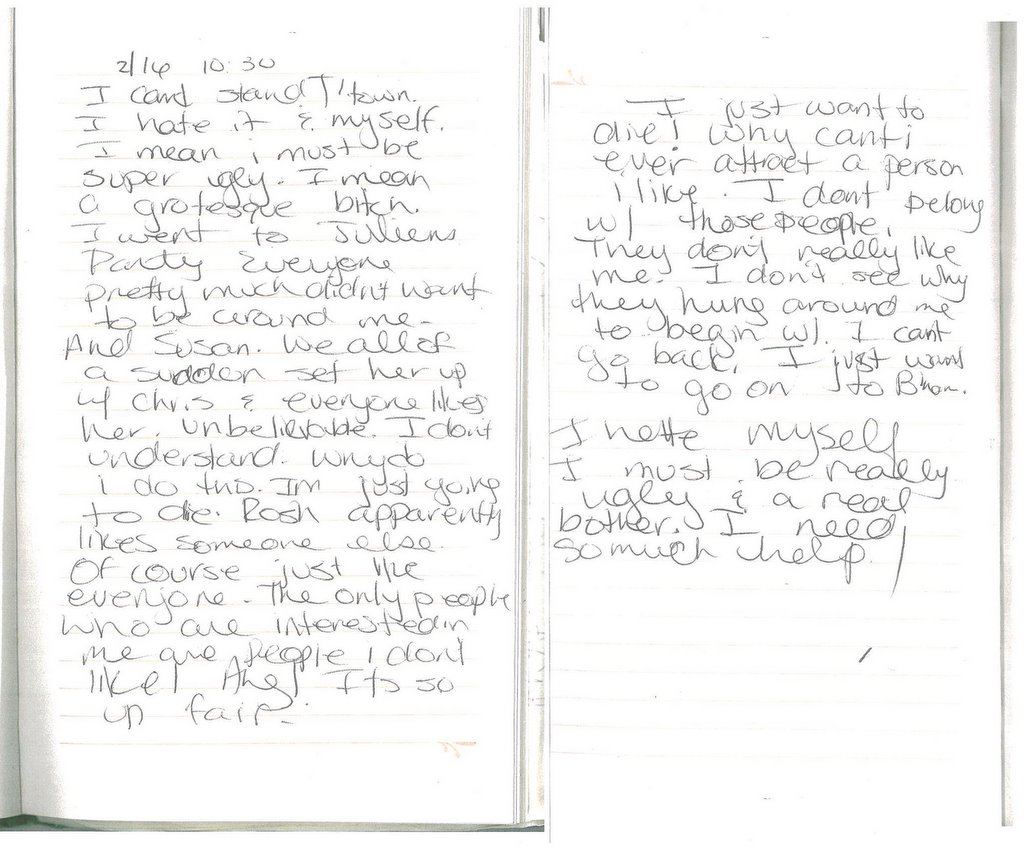 2/16 10:30
I cant stand T'town.
I hate it & myself.
I mean i must be
super ugly. I mean
a grotesque bitch.
I went to Juliens
Party Everyone
pretty much didn't want
to be around me.
And Susan. We all of
a sudden set her up
w/ Chris & everyone likes
her. Unbelievable. I don't
understand. Why do
i do this. I'm just going
to die. Rosh apparently
likes someone else.
Of course just like
everyone. The only people
who are interested in
me are people i don't
like! Ahg! Its so
un fair.
I just want to
die! Why cant i
ever attract a person
I like. I dont belong
w/ those people.
They don't really like
me. I don't see why
they hung around me
to begin w/. I cant
go back. I just want
to go on to
I hate myself
I must be really
ugly & a real
bother. I need
so much help!